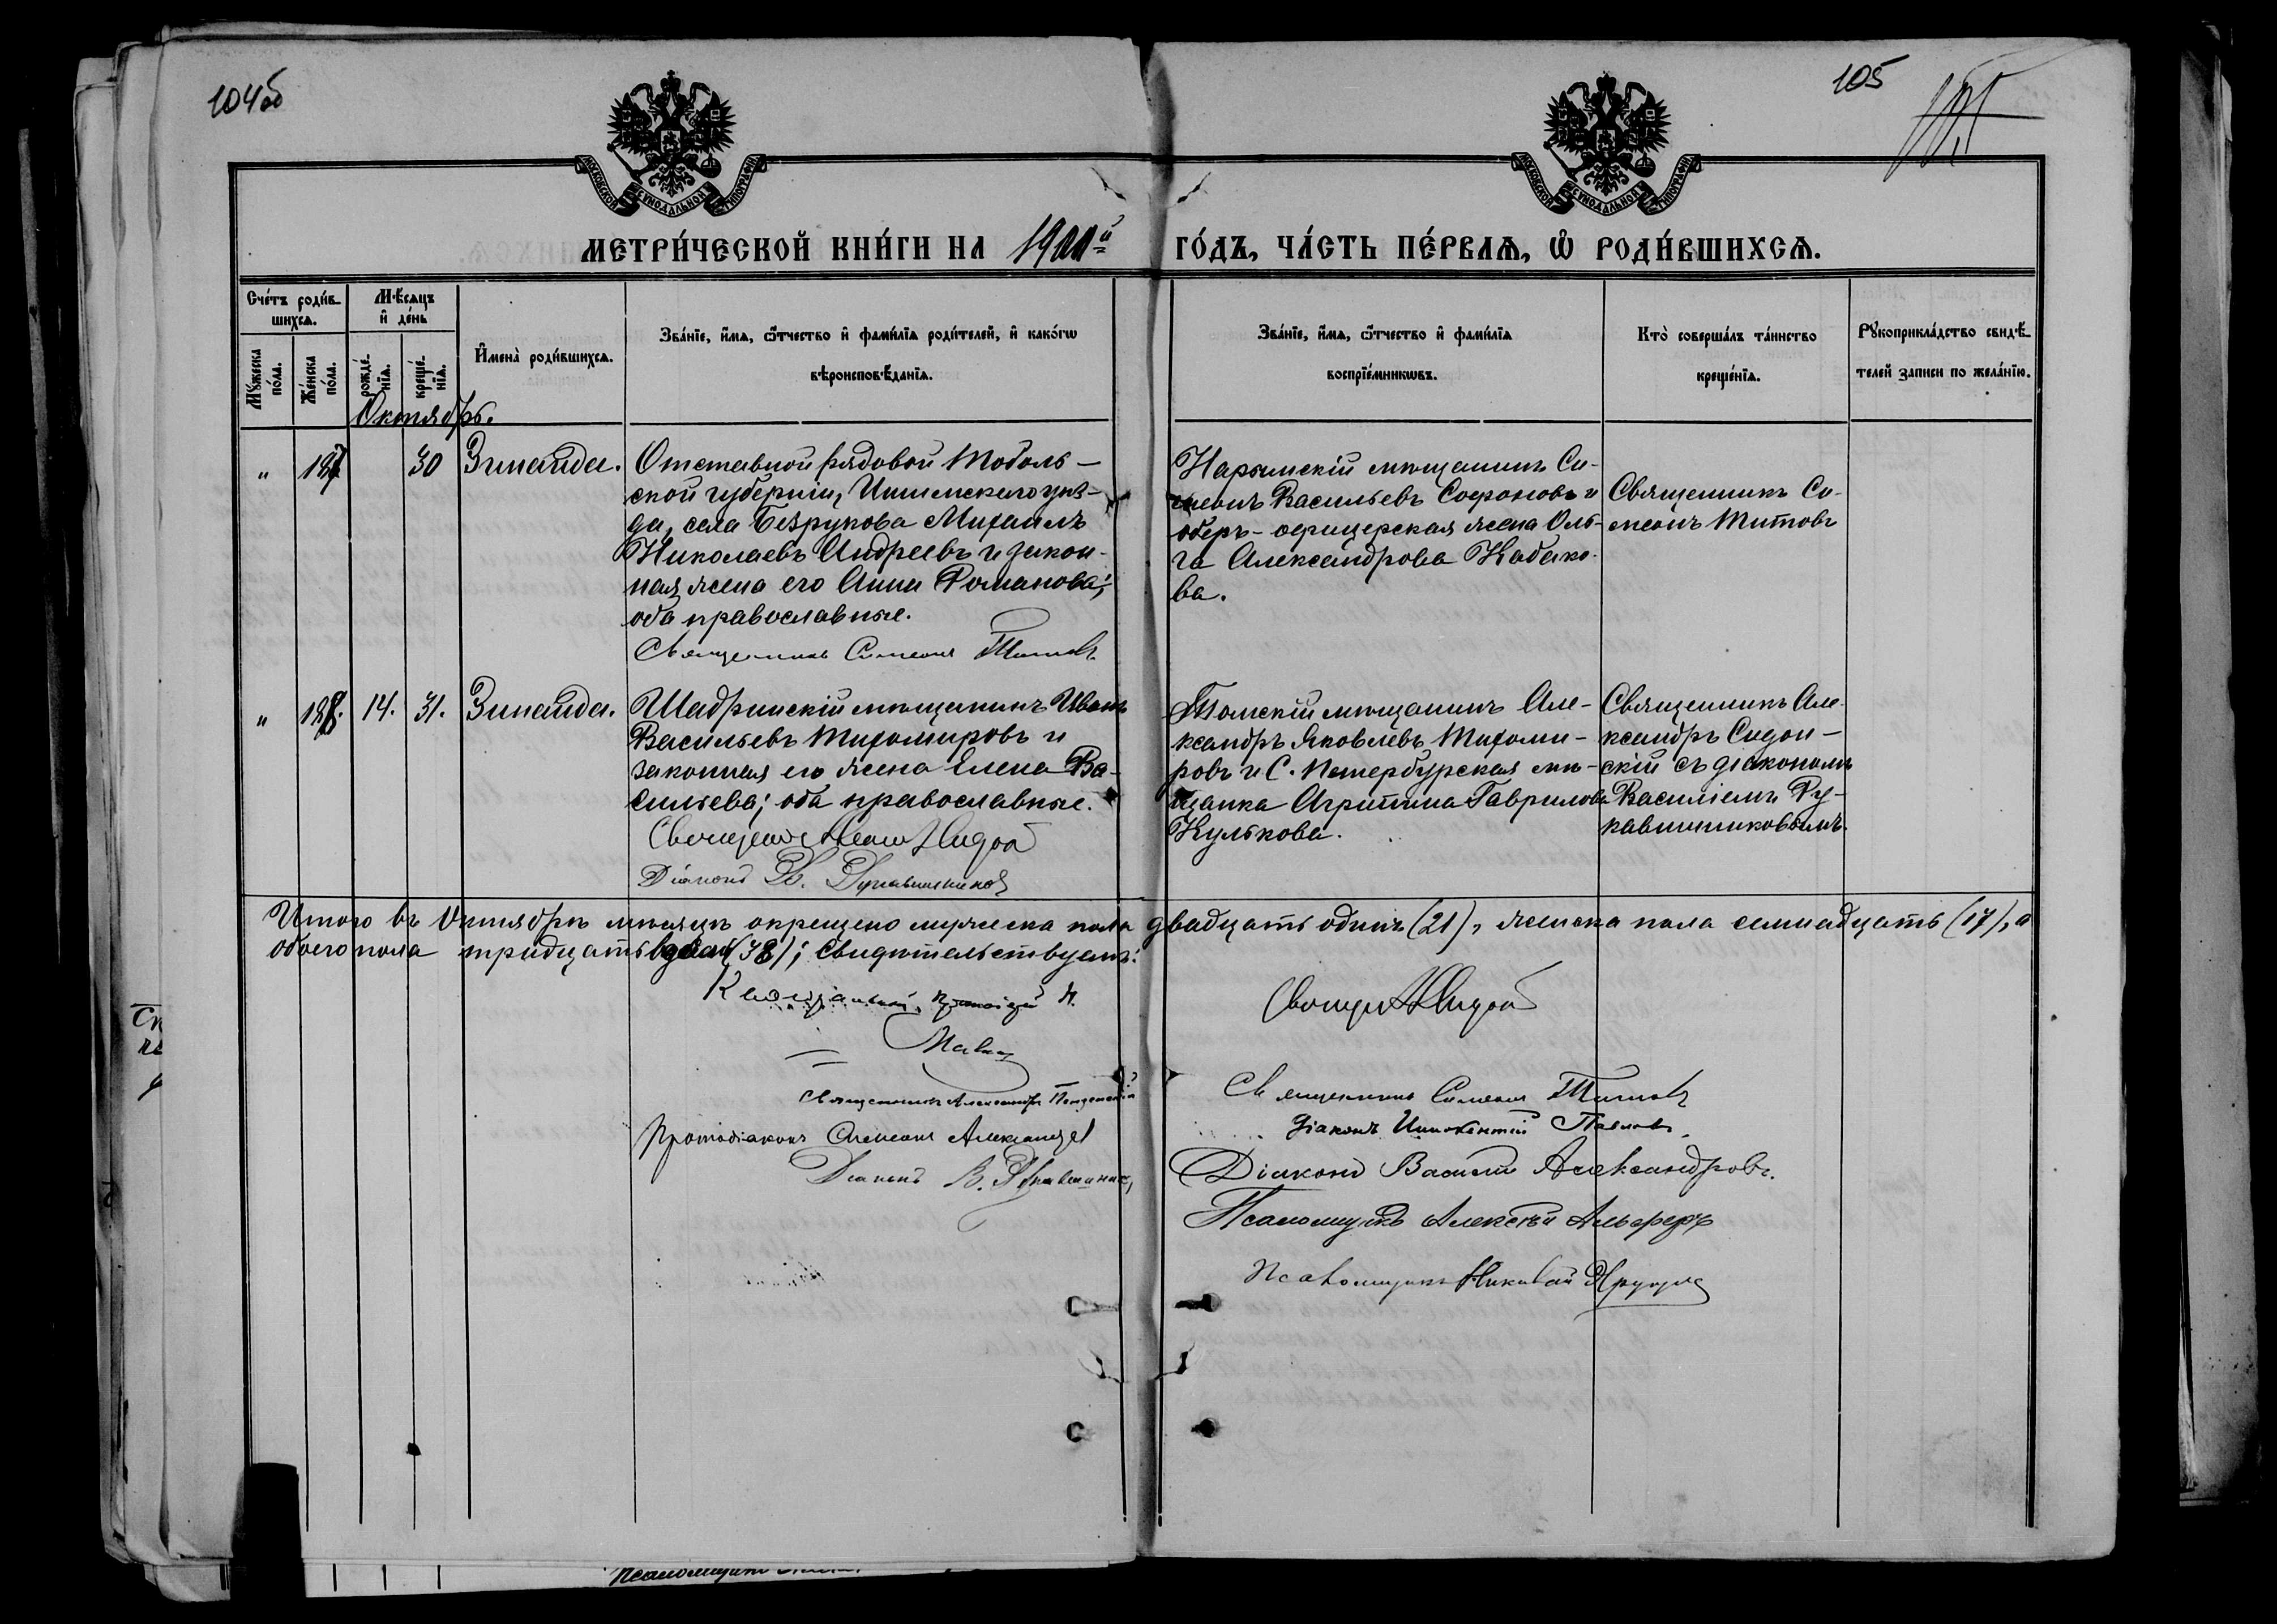 104об
105
МОСКОВСКОЙ СѴНОДАЛЬНОЙ ТИПОГРАФІИ
МОСКОВСКОЙ СѴНОДАЛЬНОЙ ТИПОГРАФІИ
МЕТРИ́ЧЕСКОЙ КНИ́ГИ НА 1900й ГО́ДЪ, ЧА́СТЬ ПЕ́РВАѦ, Ѡ҆ РОДИ́ВШИХСѦ.
Сче́тъ роди́в-
шихсѧ.
Мѣ́сѧцъ
и҆ де́нь
Мꙋ́жеска
по́ла.
Же́нска
по́ла.
рожде́-
нїѧ.
креще́-
нїѧ.
И҆мена̀ роди́вшихсѧ.
Зва́нїе, и҆́мѧ, ѻ҆́тчество и҆ фами́лїѧ роди́телей, и҆ како́гѡ
вѣроисповѣ́данїѧ.
Зва́нїе, и҆́мѧ, ѻ҆́тчество и҆ фами́лїѧ
воспрїе́мникѡвъ.
Кто̀ соверша́лъ та́инство
креще́нїѧ.
Рꙋкоприкла́дство свидѣ́-
телей записи по жела́нїю.
Октябрь.
" 30 Зинаида.
Отставной рядовой Тоболь-
ской губерніи, Ишимскаго уѣз-
да, села Безрукова Михаилъ
Николаевъ Андреевъ и закон-
ная жена его Анна Романова;
оба православные.
Священникъ Симеонъ Титовъ
Нарымскій мѣщанинъ Си-
меонъ Васильевъ Софоновъ и
оберъ-офицерская жена Оль-
га Александрова Кабако-
ва.
Священникъ Си-
меонъ Титовъ
" 14. 31. Зинаида.
Шадринскій мѣщанинъ Иванъ
Васильевъ Тихомировъ и
законная его жена Елена Ва-
сильева; оба православные.
Діаконъ В. Рукавишниковъ
Томскій мѣщанинъ Але-
ксандръ Яковлевъ Тихоми-
ровъ и С. Петербурская мѣ-
щанка Агриппина Гаврилова
Кулькова.
Священникъ Але-
ксандръ Сидон-
скій съ діакономъ
Василіемъ Ру-
кавишниковымъ.
Итого въ Октябрѣ мѣсяцѣ окрещено мужеска пола двадцать одинъ (21), женска пола семнадцать (17), а
обоего пола тридцать (38); Свидѣтельствуемъ:
Священникъ Александръ
Протодіаконъ Симеонъ Александровъ
Діаконъ В. Рукавишниковъ
Священникъ Симеонъ Титовъ
Діаконъ Иннокентій Павловъ.
Діаконъ Василій Александровъ.
Псаломщикъ Алексѣй
Псаломщикъ Николай